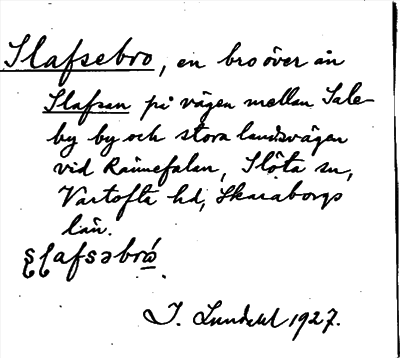 Slafsebro, en bro över ån
Slafsan på vägen mellan Sale-
by by och stora landsvägen
vid Rännefalan, Slöta sn,
Vartofta hd, Skaraborgs
län.
J. Lundell 1927.